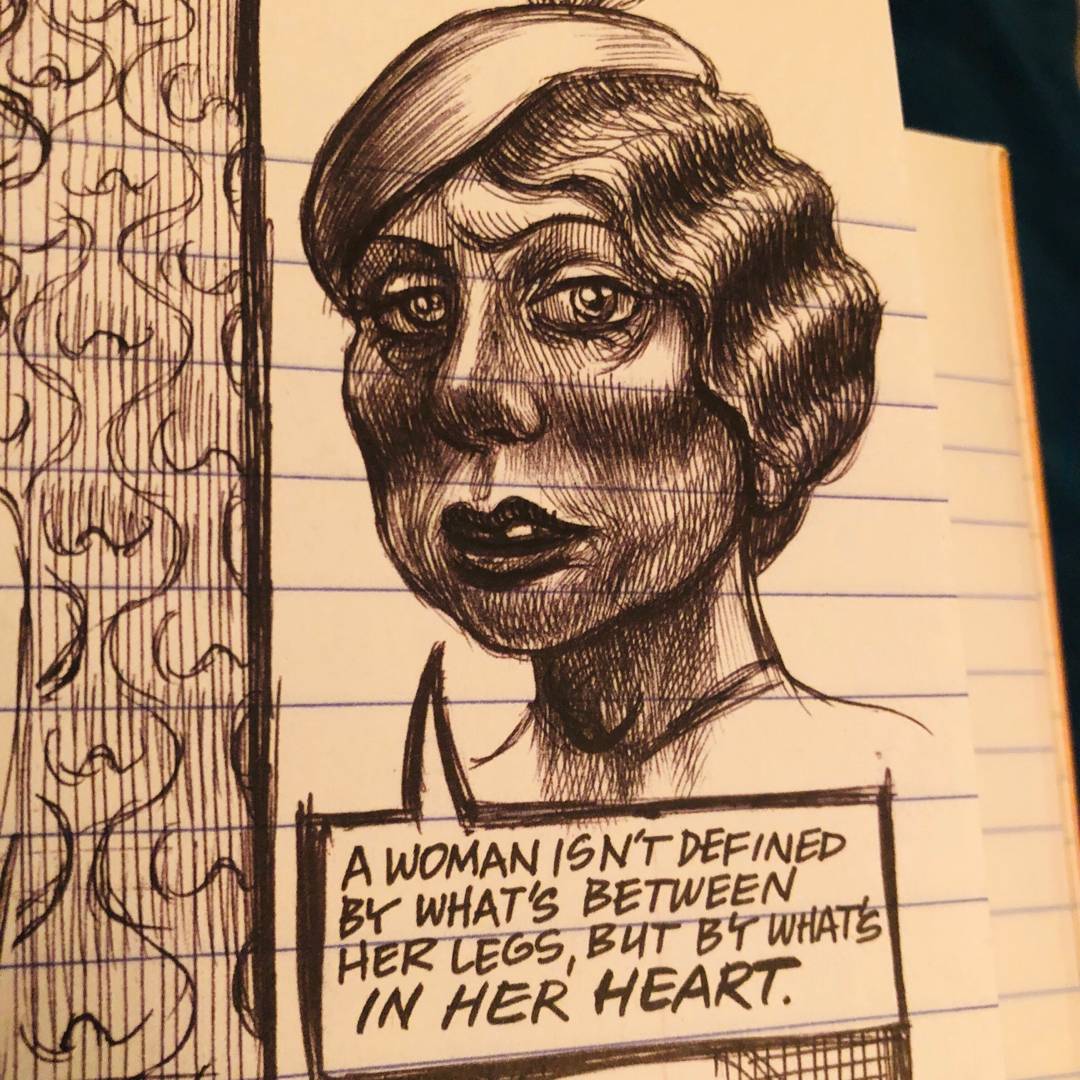 A WOMAN ISN'T DEFINED
BY WHAT'S BETWEEN
HER LEGS, BUT BY WHAT'S
IN HER HEART.